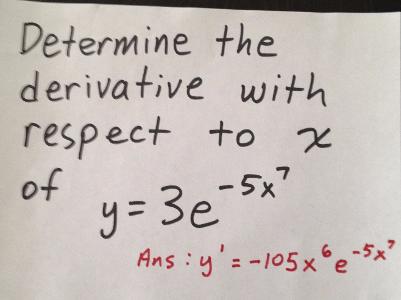 Determine the
derivative with
respect to x
of y = 3e^{-5x^7}
Ans : y' = -105x^6 e^{-5x^7}